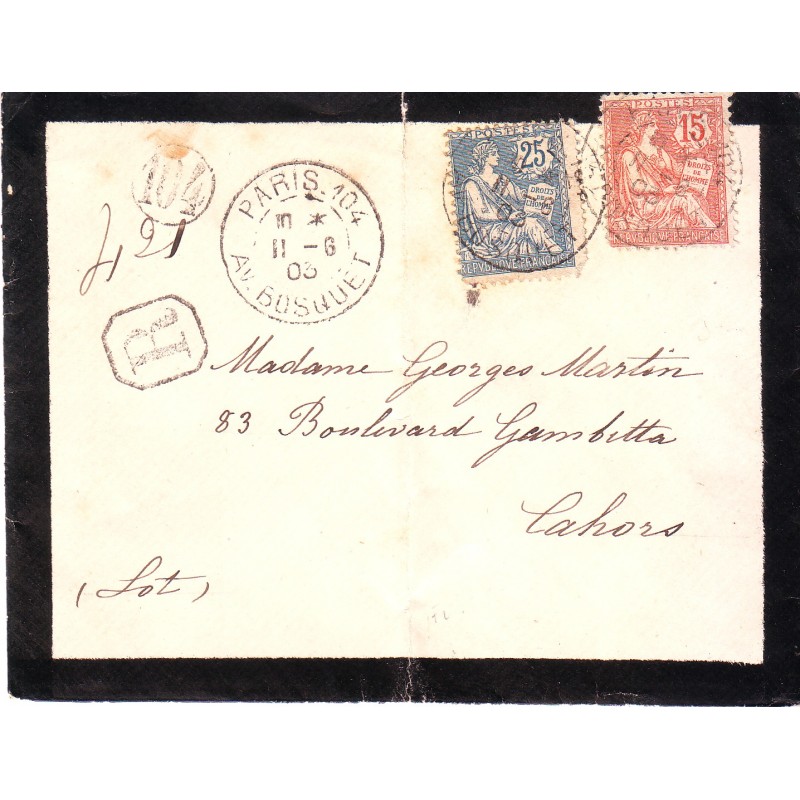 104
421
PARIS_104
E *
11 - 6
03
AV. BOSQUET
R
POSTES
25
DROITS
DE
L'HOMME
REPVBLIQVE FRANÇAISE
POSTES
15
DROITS
DE
L'HOMME
REPVBLIQVE FRANÇAISE
Madame Georges Martin
83 Boulevard Gambetta
Cahors
(Lot)